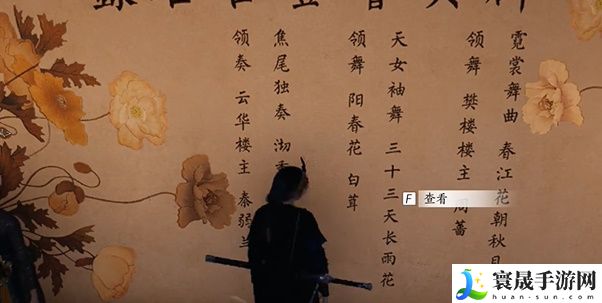 霓裳舞曲 春江花朝秋
领舞 樊楼楼主 周蔷
天女袖舞 三十三天长雨花
领舞 阳春花 白茸
焦尾独奏 沏
领奏 云华楼主 秦弱兰
F 查看
寰晟手游网
huan-sun.com